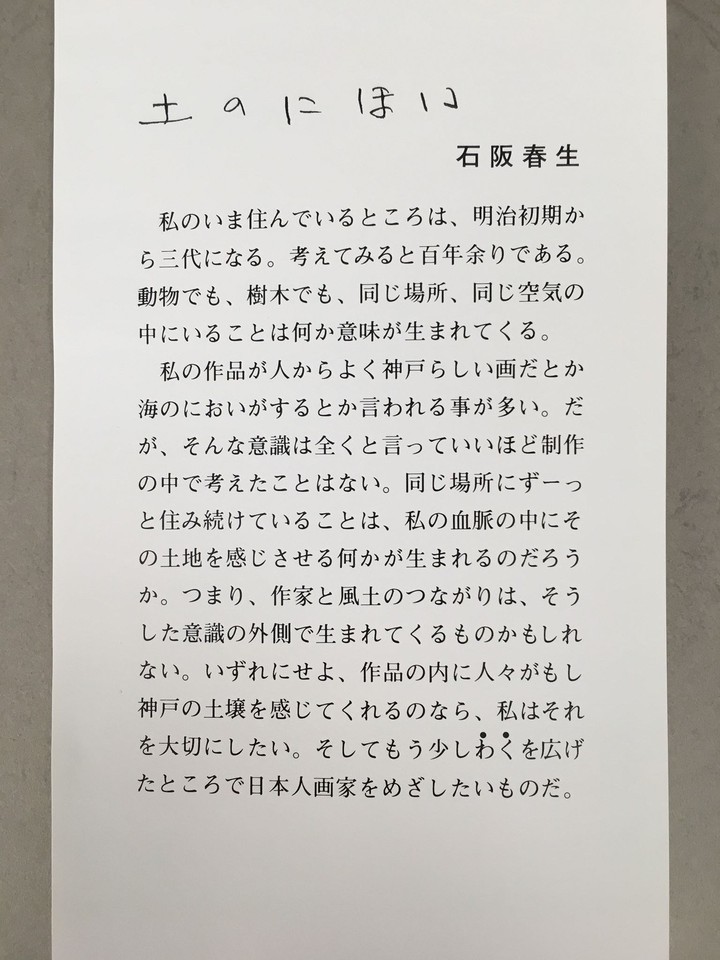 土のにほい
石阪春生
私のいま住んでいるところは、明治初期か
ら三代になる。考えてみると百年余りである。
動物でも、樹木でも、同じ場所、同じ空気の
中にいることは何か意味が生まれてくる。
私の作品が人からよく神戸らしい画だとか
海のにおいがするとか言われる事が多い。だ
が、そんな意識は全くと言っていいほど制作
の中で考えたことはない。同じ場所にずーっ
と住み続けていることは、私の血脈の中にそ
の土地を感じさせる何かが生まれるのだろう
か。つまり、作家と風土のつながりは、そう
した意識の外側で生まれてくるものかもしれ
ない。いずれにせよ、作品の内に人々がもし
神戸の土壌を感じてくれるのなら、私はそれ
を大切にしたい。そしてもう少しわくを広げ
たところで日本人画家をめざしたいものだ。